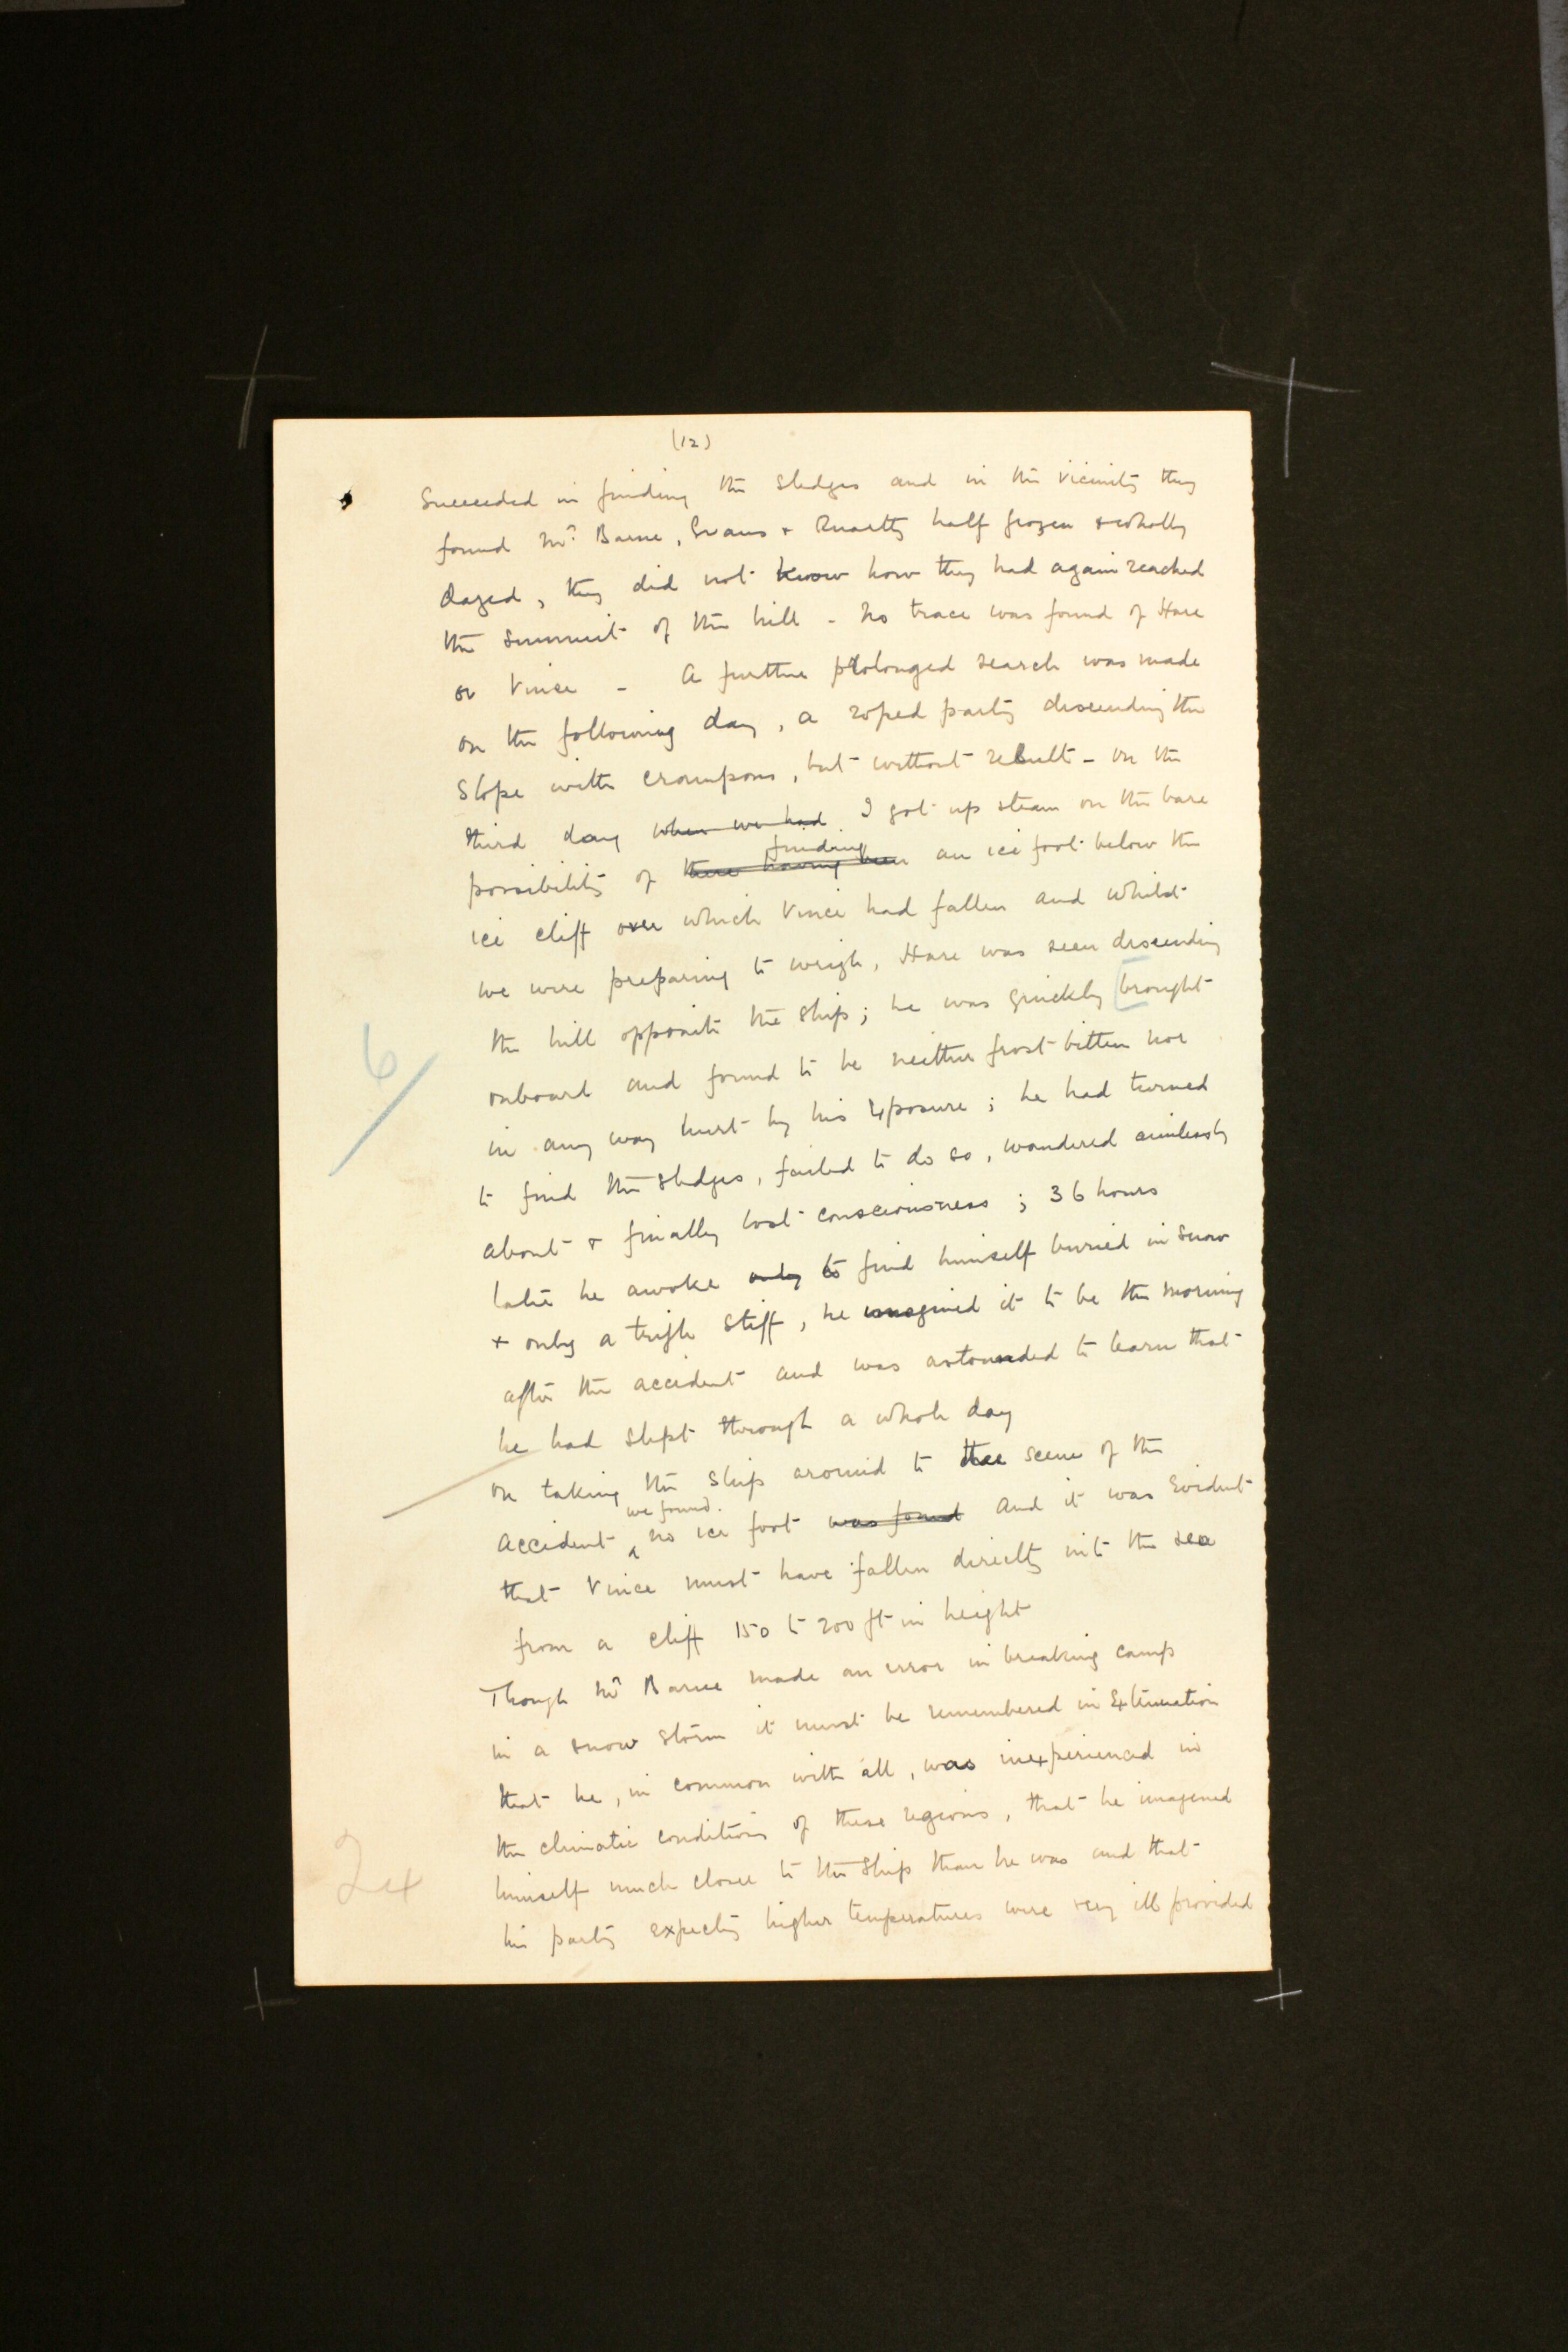 (12)
Succeeded in finding the sledges and in the vicinity they
found Mr. Barne, Evans + Quartly half frozen + wholly
dazed, they did not know how they had again reached
the summit of the hill - No trace was found of Hare
or Vince - A further prolonged search was made
on the following day, a roped party descending the
slope with crampons, but without result - On the
third day when we had I got up steam on the bare
finding
possibility of there having been an ice foot below the
ice cliff over which Vince had fallen and whilst
we were preparing to weigh, Hare was seen descending
the hill opposite the ship; he was quickly [brought
onboard and found to be neither frost bitten nor
6/
in any way hurt by his exposure; he had turned
to find the sledges, failed to do so, wandered aimlessly
about + finally lost consciousness; 36 hours
later he awoke only to find himself buried in snow
+ only a trifle stiff, he imagined it to be the morning
after the accident and was astounded to learn that
he had slept through a whole day
On taking the ship around to the scene of the
we found
accident no ice foot was found and it was evident
that Vince must have fallen directly into the sea
from a cliff 150 to 200 ft in height
Though Mr Barne made an error in breaking camp
in a snow storm it must be remembered in extenuation
that he, in common with all, was inexperienced in
the climatic conditions of these regions, that he imagined
himself much closer to the ship than he was and that
his party expecting higher temperatures were very ill provided